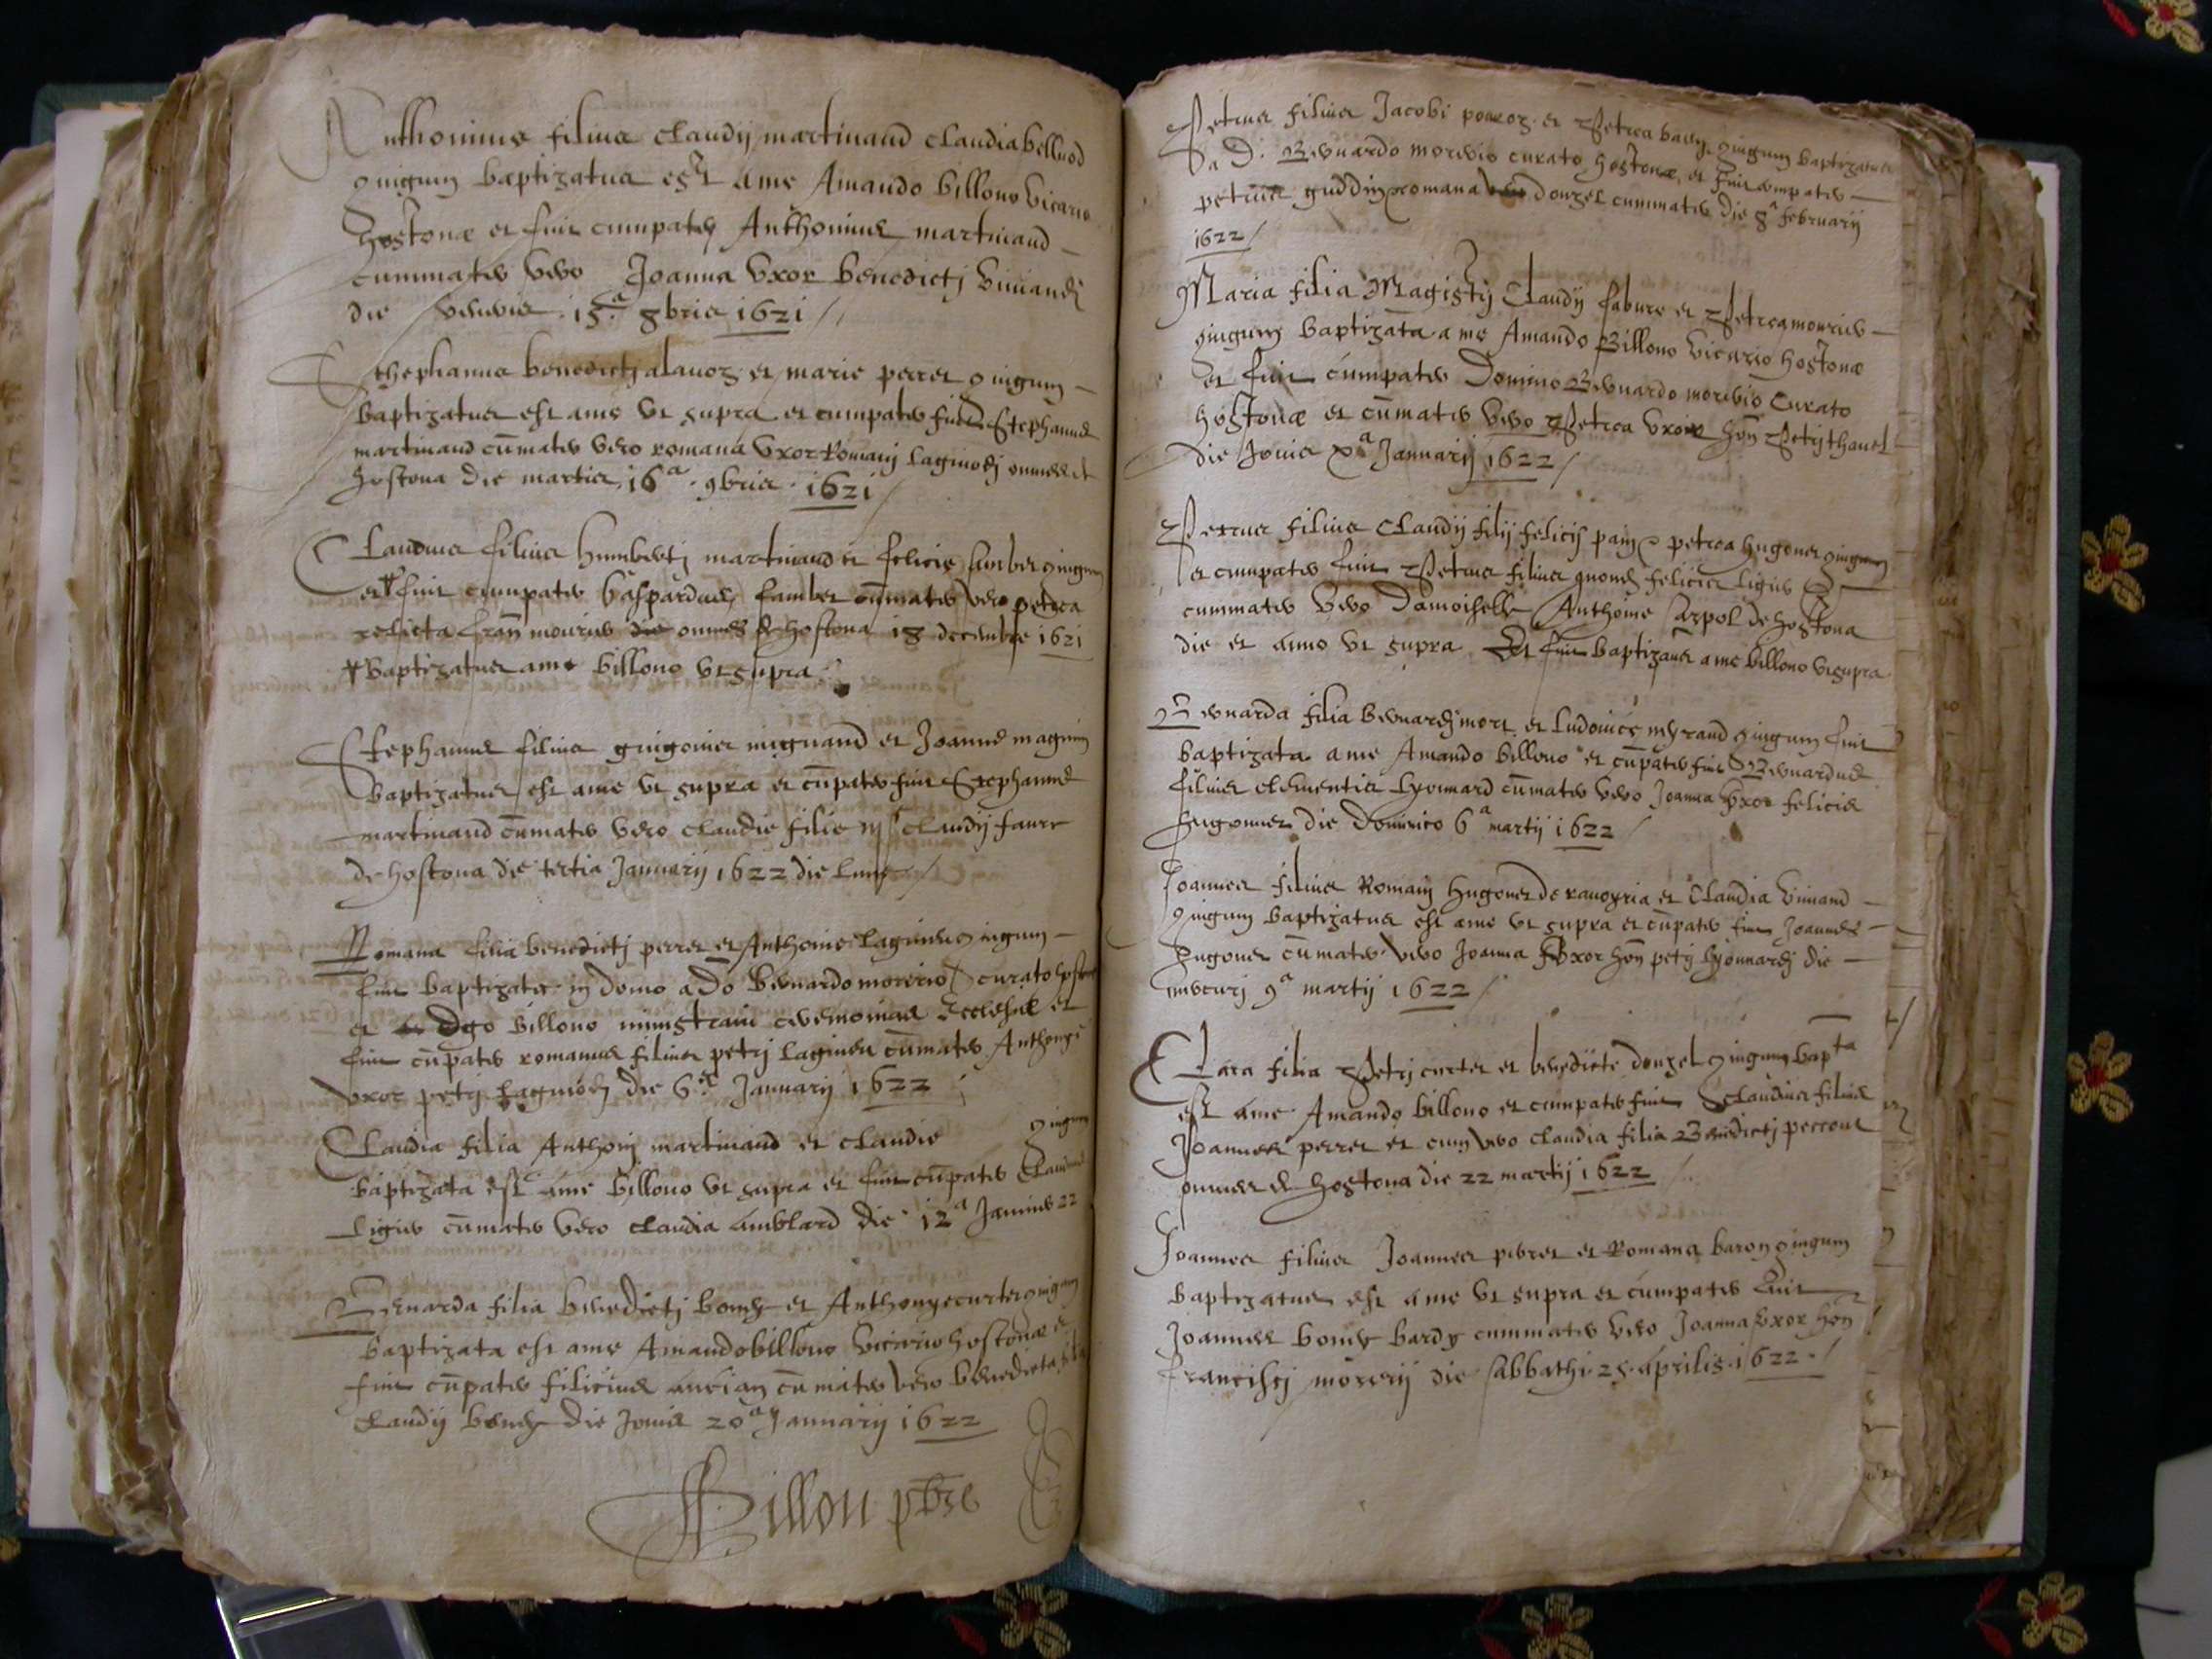 Anthonius filius Claudij martinand Claudia belluod
coniugum baptizatus est a me Amando Billono Vicario
hostonæ et fuit cumpater Anthonius martinand
cummater vero Joanna Vxor benedicti Viviandi
die 15.a 8bris 1621
Sthephanus benedicti alavoz et marie perret coniugum
baptizatus est a me vt supra et cumpater fuit Stephanus
martinand cum̄ater vero romana Vxor Romanj
hostona die martis 16a. 9bris. 1621
Claudius filius humberti martinand et felicie famber coniugum
et + fuit cumpater Gaspardus famber cum̄ater vero petrea
relicta fran mourier die omnes de hostona 18 decembre 1621
+ baptizatus a me billono vt supra
Stephanus filius guigonis mignand et Joanne magnin
baptizatus est a me vt supra et cum̄pater fuit Stephanus
martinand cum̄ater vero claudie filie mri claudij faure
de hostona die tertia Januarij 1622 die lune
Romana filia benedicti perret et Anthonie lagnieu coniugum
fuit baptizata in domo a Do Bernardo morerio curato
et ego billono ministravi ceremonias Ecclesiæ et
fuit cum̄pater romanus filius petri lagnieu cum̄ater Anthonye
vxor petri die 6.a Januarij 1622
Claudia filia Anthonij martinand et claudie coniugum
baptizata est a me billono vt supra et fuit cum̄pater Claudius
Ligier cum̄ater vero claudia amblard die 12a 22
Bernarda filia benedicti et Anthonye curtet coniugum
baptizata est a me Amando billono Vicario hostonæ et
fuit cum̄pater cum̄ater vero benedicta filia
Claudij die Jovis 20a Januarij 1622
Billon pbre
Petrus filius Jacobi et Petrea coniugum baptizatus
a D. Bernardo morerio curato hostonæ et fuit cumpater
petrus romana donzel cummater die 8a februarij
1622
Maria filia Magistri Claudij fabure et Petrea mourier
coniugum baptizata a me Amando Billono Vicario hostonæ
et fuit cumpater Domino Bernardo morerio Curato
hostonæ et cum̄ater vero Petrea vxor hon̄ Petri thanel
die Jovis xa Januarij 1622
Petrus filius Claudij filij felicis et petrea hugonet coniugum
et cumpater fuit Petrus filius quondam felicis ligier et
cummater vero Damoiselle Anthoine Carpol de hostona
die et anno vt supra Et fuit baptizatus a me billono vt supra
Bernarda filia bernardi mort et ludovice meyrand coniugum fuit
baptizata a me Amando billono et cum̄pater fuit Bernardus
filius clementis hyonnard cum̄ater vero Joanna vxor felicis
hugonnet die dominico 6a martij 1622
Joannes filius Romanj hugonet de ravoyria et Claudia Viniand
coniugum baptizatus est a me vt supra et cum̄pater fuit Joannes
hugonet cum̄ater vero Joanna vxor hon̄ petri hyonnardi die
mercurj 9a martij 1622
Clara filia Petri curtet et benedicte donzel coniugum bapta
est a me Amando billono et cumpater fuit Claudius filius
Joannes perret et cum vero claudia filia Benedicti perrout
omnes de hostona die 22 martij 1622
Joannes filius Joannes perret et Romana baron coniugum
baptizatus est a me vt supra et cumpater fuit
Joannes bardy cummater vero Joanna vxor hon̄
francisci morerij die sabbathi 25 aprilis 1622